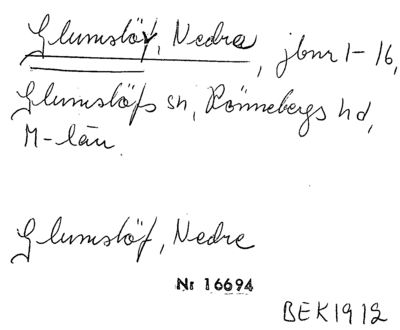 Glumslöv, Nedre, jbnr 1-16,
Glumslöfs sn, Rönnebergs hd,
M-län.
Glumslöf, Nedre
Nr 16694
BEK1912